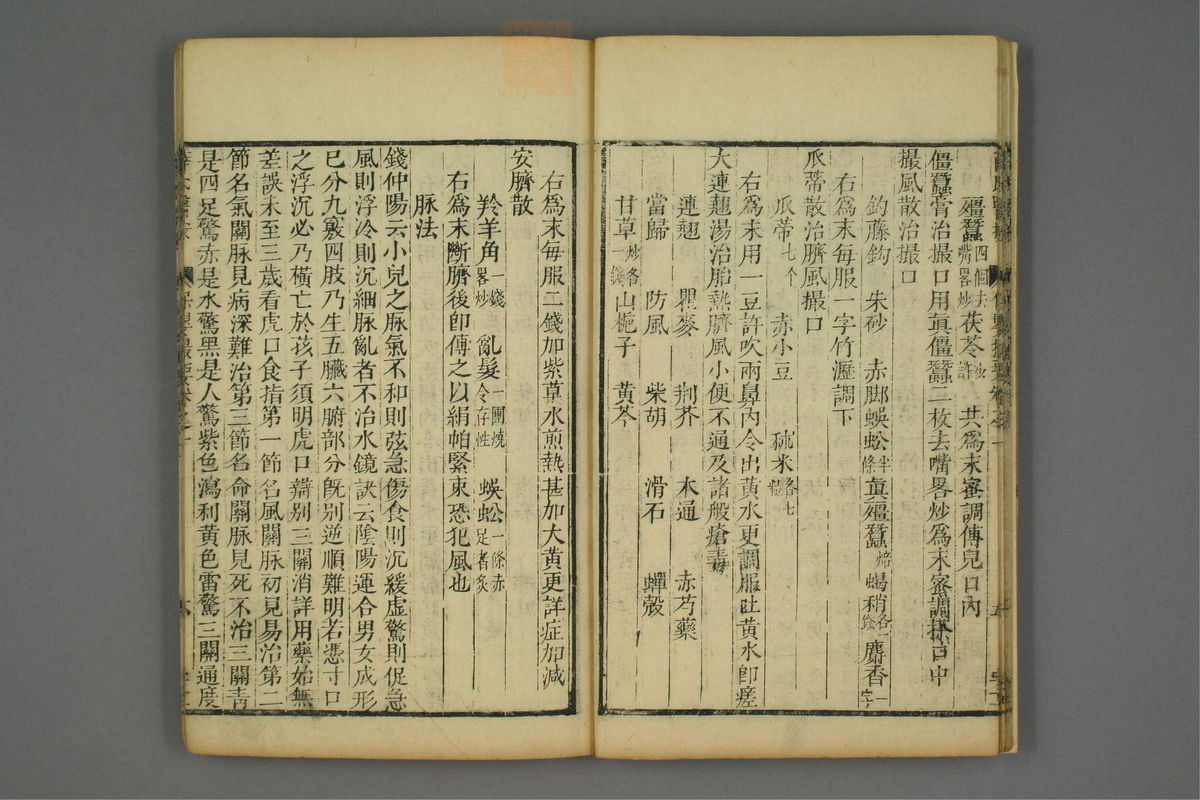 殭蠶四個去嘴畧炒茯苓少許共爲末蜜調傅兒口內
僵蠶膏治撮口用眞僵蠶二枚去嘴畧炒爲末蜜調抹口中
撮風散治撮口
釣藤鈎 朱砂 赤脚蜈蚣半條眞殭蠶焙蝎稍各一錢麝香一字
右爲末每服一字竹瀝調下
瓜蒂散治臍風撮口
瓜蒂七个 赤小豆 秫米各七粒
右爲末用一豆許吹兩鼻內令出黃水更調服吐黃水卽瘥
大連翹湯治胎熱臍風小便不通及諸般瘡毒
連翹 瞿麥 荆芥 木通 赤芍藥
當歸 防風 柴胡 滑石 蟬殼
甘草炒各一錢山梔子 黃芩
右爲末每服二錢加紫草水煎熱甚加大黃更詳症加減
安臍散
羚羊角一錢畧炒 亂髮一團燒令存性 蜈蚣一條赤足者炙
右爲末斷臍後卽傅之以絹帕緊束恐犯風也
脉法
錢仲陽云小兒之脉氣不和則弦急傷食則沉緩虛驚則促急
風則浮冷則沉細脉亂者不治水鏡訣云陰陽運合男女成形
已分九竅四肢乃生五臟六腑部分旣別逆順難明若憑寸口
之浮沉必乃橫亡於孩子須明虎口辯別三關消詳用藥始無
差誤未至三歲看虎口食指第一節名風關脉初見易治第二
節名氣關脉見病深難治第三節名命關脉見死不治三關靑
是四足驚赤是水驚黑是人驚紫色瀉利黃色雷驚三關通度